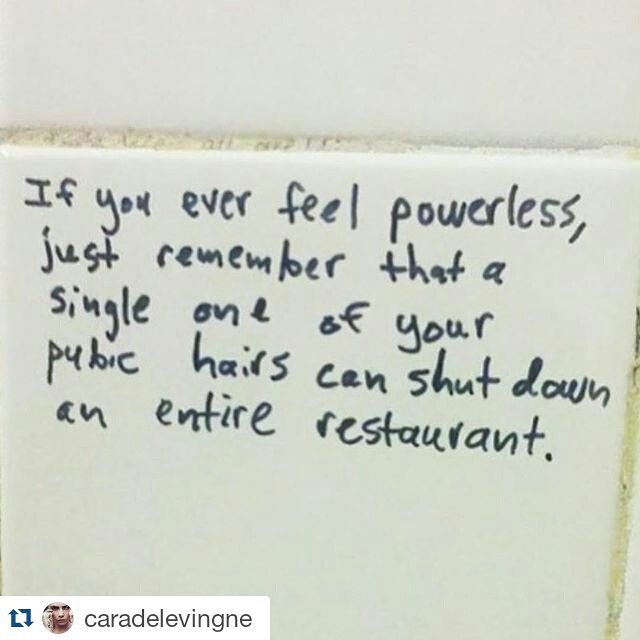 If you ever feel powerless,
just remember that a
single one of your
pubic hairs can shut down
an entire restaurant.
caradelevingne